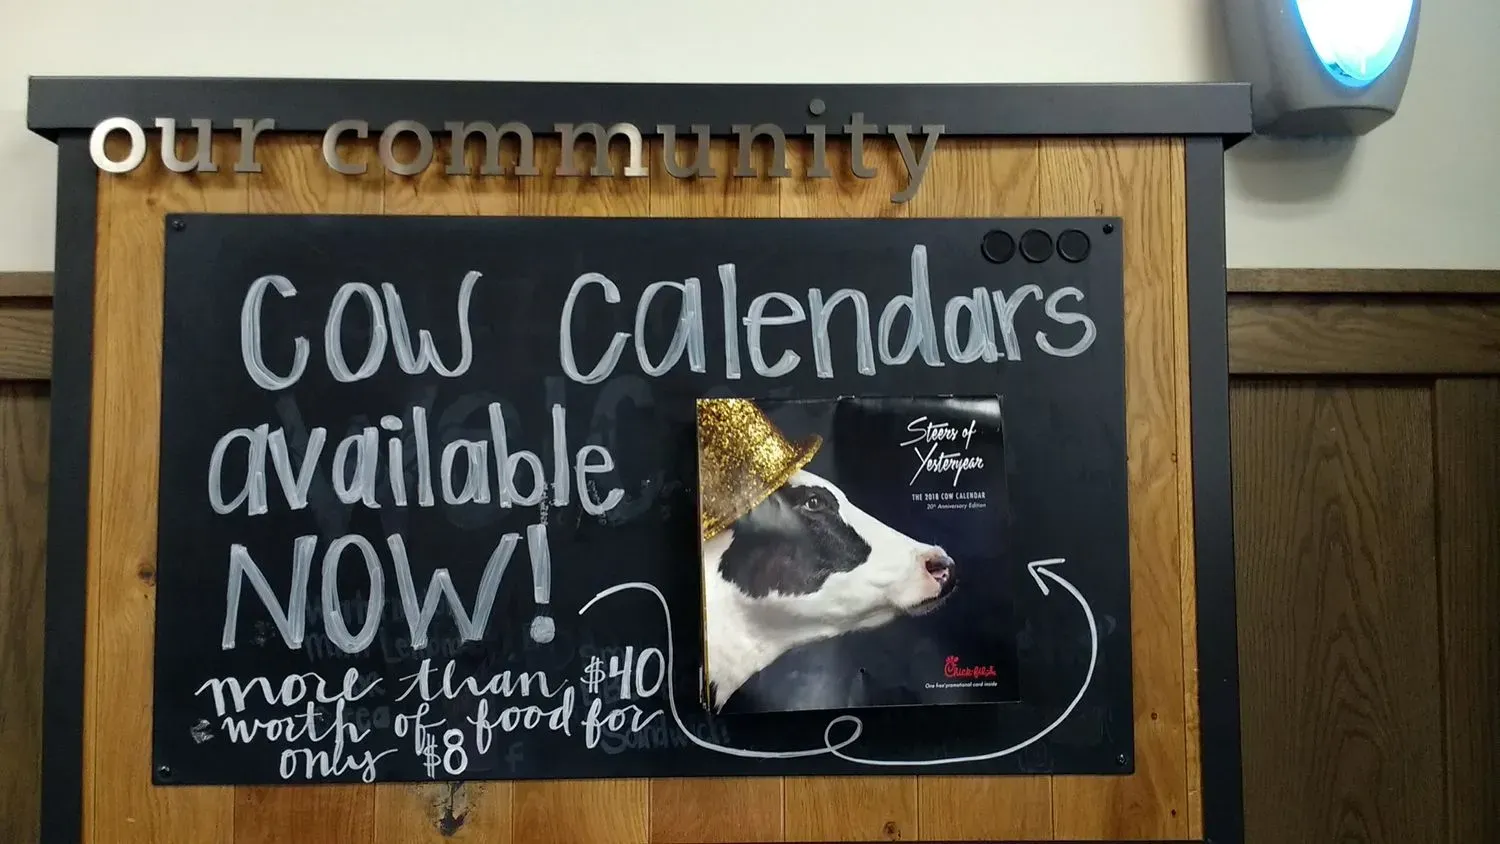 our community
COW Calendars
available
NOW!
Steers of
Yesteryear
THE 2018 COW CALENDAR
20th Anniversary Edition
more than $40
worth of food for
only $8
Chick-fil-A
One free promotional card inside